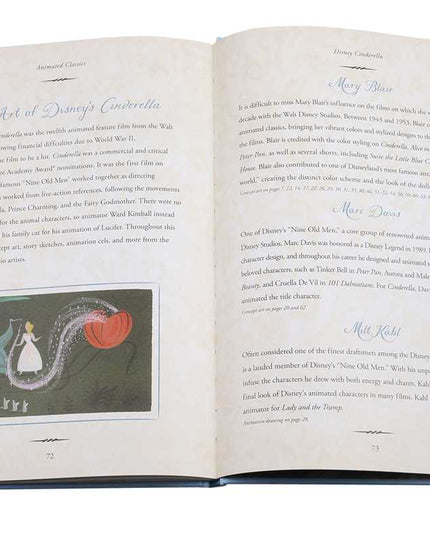 Animated Classics
Art of Disney's Cinderella
Cinderella was the twelfth animated feature film from the Walt
owing financial difficulties due to World War II,
e film to be a hit. Cinderella was a commercial and critical
e Academy Award" nominations. It was the first film on
famous "Nine Old Men" worked together as directing
s worked from live-action references, following the movements
lla, Prince Charming, and the Fairy Godmother. There were no
for the animal characters, so animator Ward Kimball instead
his family cat for his animation of Lucifer. Throughout this
cept art, story sketches, animation cels, and more from the
io artists.
72
Disney Cinderella
Mary Blair
It is difficult to miss Mary Blair's influence on the films on which she w
decade with the Walt Disney Studios. Between 1943 and 1953, Blair
animated classics, bringing her vibrant colors and stylized designs to th
the films. Blair is credited with the color styling on Cinderella, Alice in
Peter Pan, as well as several shorts, including Susie the Little Blue C
House. Blair also contributed to one of Disneyland's most famous
world," creating the distinct color scheme and the look of the doll
Concept art on pages
Marc Davis
One of Disney's "Nine Old Men," a core group of renowned animat
Disney Studios, Marc Davis was honored as a Disney Legend in 1989.
character design, and throughout his career he designed and animated
beloved characters, such as Tinker Bell in Peter Pan, Aurora and Male
Beauty, and Cruella De Vil in 101 Dalmatians. For Cinderella, Davi
animated the title character.
Concept art on pages 20 and 62
Milt Kahl
Often considered one of the finest draftsmen among the Disney
is a lauded member of Disney's "Nine Old Men." With his unp
infuse the characters he drew with both energy and charm. Kahl
final look of Disney's animated characters in many films. Kahl
animator for Lady and the Tramp.
Animation drawing on page 28.
73